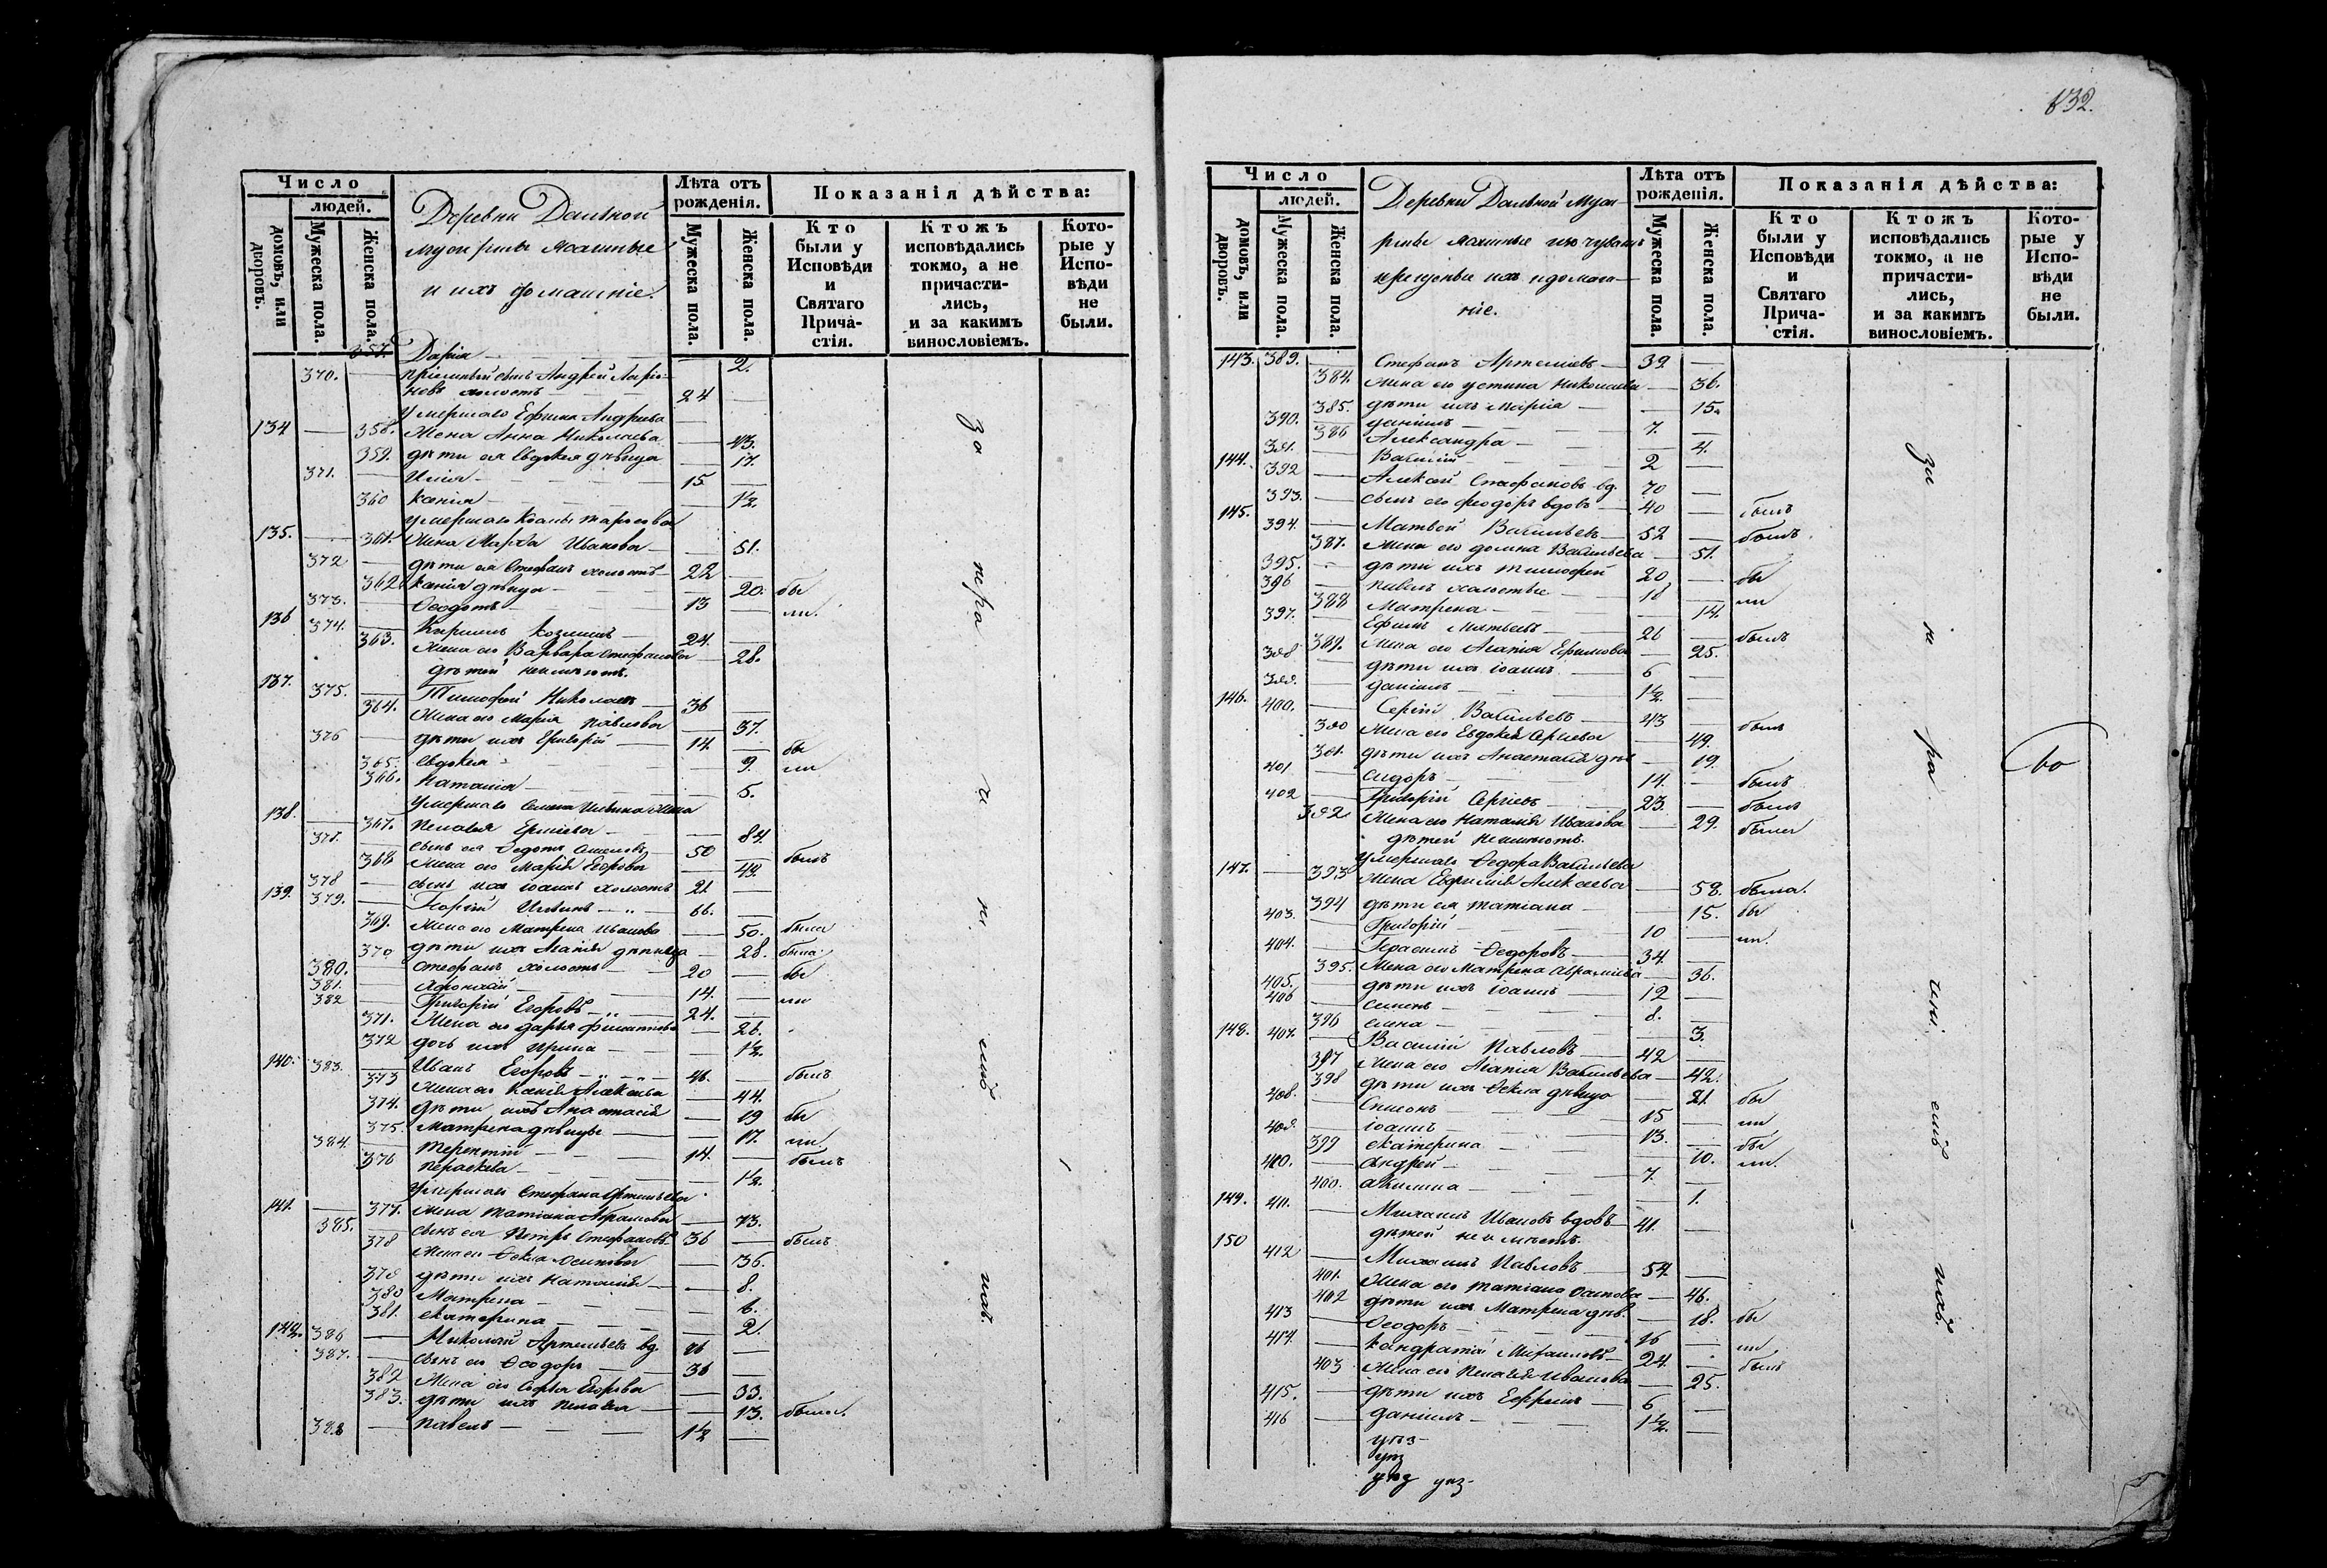 Число
людей.
домовъ, или дворовъ.
Мужеска пола.
Женска пола.
Деревни Дальной
и ихъ домашніе.
Лѣта отъ рожденія.
Мужеска пола.
Женска пола.
Показанія дѣйства:
Кто были у Исповѣди и Святаго Причастія.
Ктожъ исповѣдались токмо, а не причастились, и за какимъ винословіемъ.
Которые у Исповѣди не были.
357. Дарія — 2.
370. пріемный сынъ Андрей
холостъ — 24
Умершаго Ефима Андреева
134 358. Жена Анна Николаева — 43.
359. дѣти ея Евдокія дѣвица — 17.
371. Илія — 15
360 Ксенія — 1½.
умершаго Козмы Тарасова
135. 361. Жена Марѳа Иванова — 51.
372 дѣти ея Стефанъ холостъ — 22
362 Ксенія дѣвица — 20. бы
373. Ѳеодотъ — 13 ли.
136 374. Кириллъ Козминъ — 24.
363. Жена его Варвара Стефанова — 28.
дѣтей неимѣютъ.
137. 375. Тимофей Николаевъ — 36
364. Жена его Марія Павлова — 37.
376 дѣти ихъ Григорій — 14. бы
365. Евдокія — 9. ли
366. Наталія — 5.
138. умершаго Семена Ильина жена
367. Пелагея Ермиева — 84.
377. сынъ ея Ѳедотъ Семеновъ — 50 былъ
368 Жена его Марія Егорова — 49.
378 сынъ ихъ Іоаннъ холостъ — 21.
139. 379. Георгій Ильинъ — 66.
369. Жена его Матрена Иванова — 50. была
370 дѣти ихъ Агапія дѣвица — 28. была
380. Стефанъ холостъ — 20 бы
381. Аѳонасій — 14. ли
382 Григорій Егоровъ — 24.
371. Жена его Дарья Филиппова — 26.
372 дочь ихъ Ирина — 1½.
140. 383. Иванъ Егоровъ — 46. былъ
373 Жена его Ксенія Алексѣева — 44.
374. дѣти ихъ Анастасія — 19 бы
375. Матрена дѣвицы — 17. ли.
384. Терентій — 14. былъ
376 Параскева — 1½.
Умершаго Стефана Артемьева
141. 377. Жена Татіана Абрамова — 73.
385. сынъ ея Петръ Стефановъ — 36 былъ
378 Жена его Ѳекла Осипова — 36.
379 дѣти ихъ Наталія — 8.
380 Матрена — 6.
381. Екатерина — 2.
142. 386 Николай Артемьевъ вд.
387. сынъ его Ѳеодоръ — 36
382 Жена его Софья Егорова — 33.
383. дѣти ихъ Пелагея — 13. была.
388 Павелъ — 1½
832.
Число
людей.
домовъ, или дворовъ.
Мужеска пола.
Женска пола.
Деревни Дальной
Лѣта отъ рожденія.
Мужеска пола.
Женска пола.
Показанія дѣйства:
Кто были у Исповѣди и Святаго Причастія.
Ктожъ исповѣдались токмо, а не причастились, и за какимъ винословіемъ.
Которые у Исповѣди не были.
143. 389. Стефанъ Артемьевъ — 39.
384. Жена его Устина Николаева — 36.
385. дѣти ихъ Марія — 15.
390. Даніилъ — 7.
386 Александра — 4.
391. Василій — 2
144. 392 Алексѣй Стефановъ вд. 70
393. сынъ его Феодоръ вдовъ — 40 былъ
145. 394. Матвей Васильевъ — 52 былъ.
387. Жена его Домна Васильева — 51.
395. дѣти ихъ Тимофей 20 бы
396 Павелъ холостые — 18 ли
388 Матрена — 14.
397. Ефимъ Матвеевъ — 26 былъ
389. Жена его Агапія Ефимова — 25.
398 дѣти ихъ Іоаннъ — 6
399. Даніилъ — 1½.
146. 400. Сергій Васильевъ — 43 былъ
390 Жена его Евдокія Сергиева — 49.
391. дѣти ихъ Анастасія дѣв — 19.
401 Сидоръ — 14. былъ
402 Григорій Сергіевъ — 23. былъ
392 Жена его Наталія Иванова — 29. была
дѣтей неимѣютъ.
умершаго Ѳедора Васильева
147. 393 Жена Евфимія Алексѣева — 58. была.
394 дѣти ея Татіана — 15. бы
403. Григорій — 10 ли.
404. Герасимъ Ѳедоровъ — 34.
395. Жена его Матрена Абрамова — 36.
405. дѣти ихъ Іоаннъ — 12
406 Семенъ — 8.
396 Елена — 3.
148. 407. Василій Павловъ — 42
397 Жена его Агапія Васильева — 42.
398 дѣти ихъ Ѳекла дѣвица — 21. бы
408. Симеонъ — 15 ли
409. Іоаннъ — 13.
399 Екатерина — 10. бы
410. Андрей — 7. ли.
400. Акилина — 1.
149. 411. Михаилъ Ивановъ вдовъ — 41.
дѣтей неимѣетъ.
150 412 Михаилъ Павловъ — 54.
401. Жена его Татіана Осипова — 46.
402 дѣти ихъ Матрена дѣв. — 18. бы
413 Ѳеодоръ — 16 ли
414. Кондратій Михаиловъ — 24. былъ
403 Жена его Пелагея Иванова — 25.
415. дѣти ихъ Ефремъ — 6
416 Даніилъ — 1½.